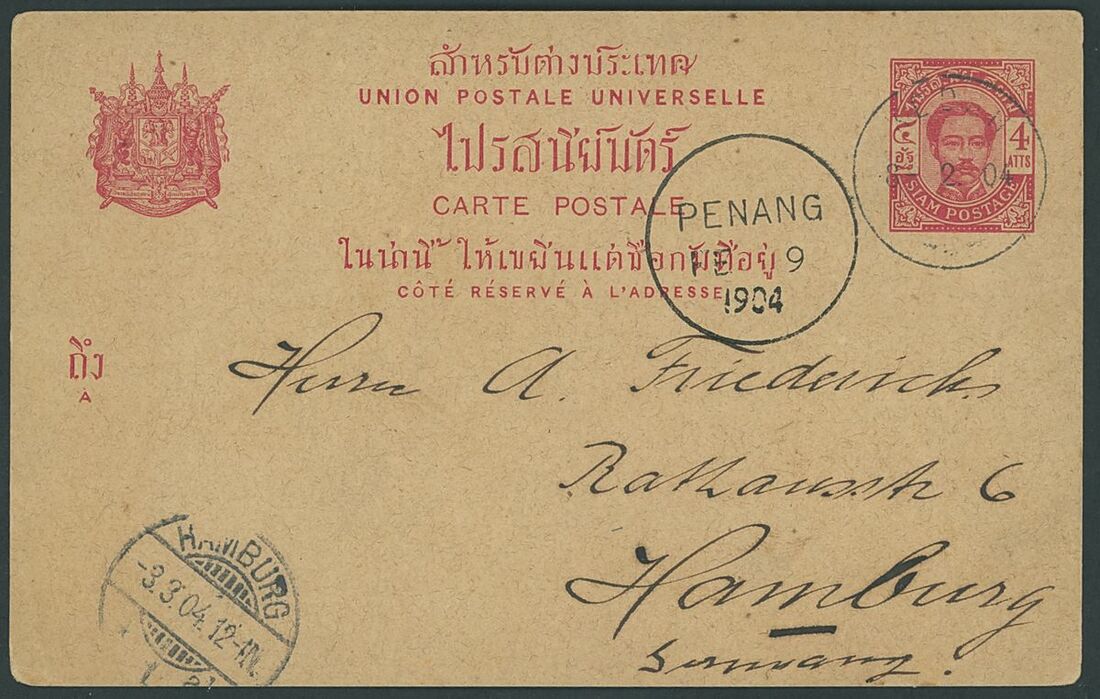 สำหรับต่างประเทศ
UNION POSTALE UNIVERSELLE
ไปรสนียบัตร์
CARTE POSTALE
ในน่านี้ ให้เขียนแต่ชื่อกับที่อยู่
CÔTÉ RÉSERVÉ À L'ADRESSE
๔ 4
อัฐ ATTS
SIAM POSTAGE
2 04
PENANG
FE 9
1904
ถึง
À
Herrn A. Friederichs
Rathausstr 6
Hamburg
Germany.
HAMBURG
-3.3.04.12-1N.